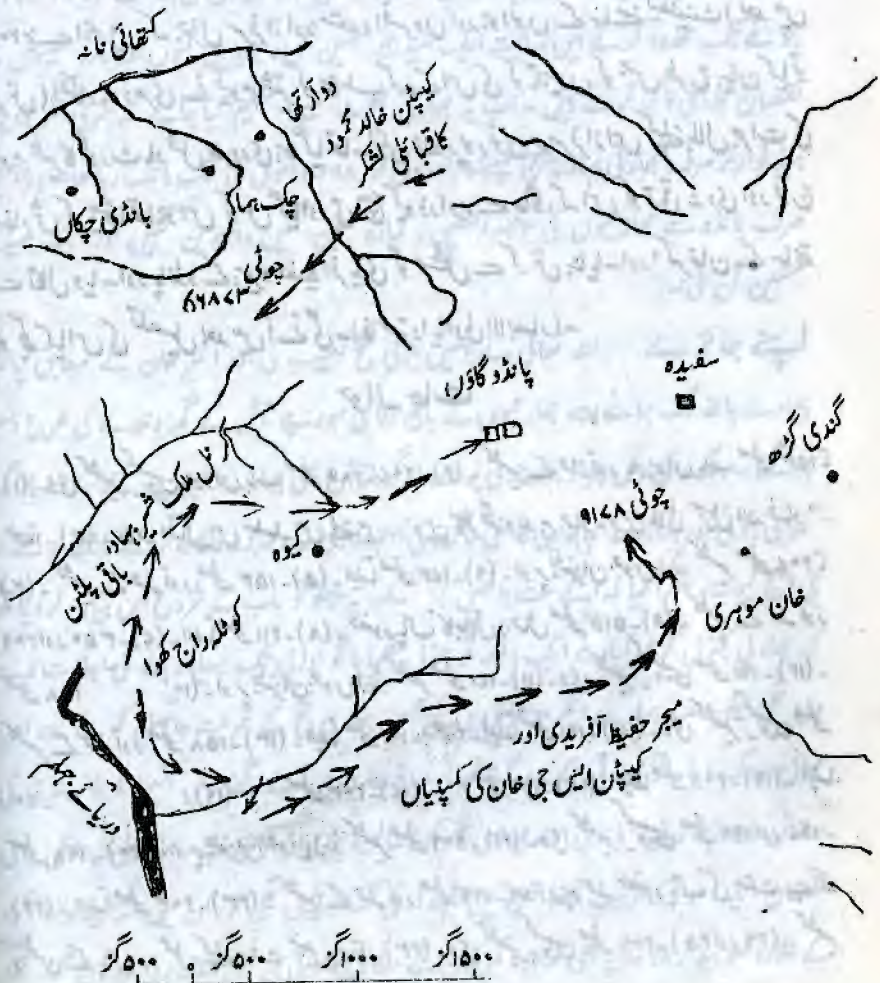 کتھائی نالہ
دوآرتھا
کیپٹن خالد محمود
کا قبائلی لشکر
چک ہما
بانڈی چکاں
چوٹی
۶۶۸۷۳
پانڈو گاؤں
سفیدہ
گندی گڑھ
چوٹی ۹۱۷۸
خان موہری
کیوہ
کرنل ملک شیر بہادر
باقی پلٹن
کوٹلہ راج کھوا
دریائے جہلم
میجر حفیظ آفریدی اور
کیپٹن ایس جی خان کی کمپنیاں
۵۰۰ گز ۰ ۵۰۰ گز ۱۰۰۰ گز ۱۵۰۰ گز